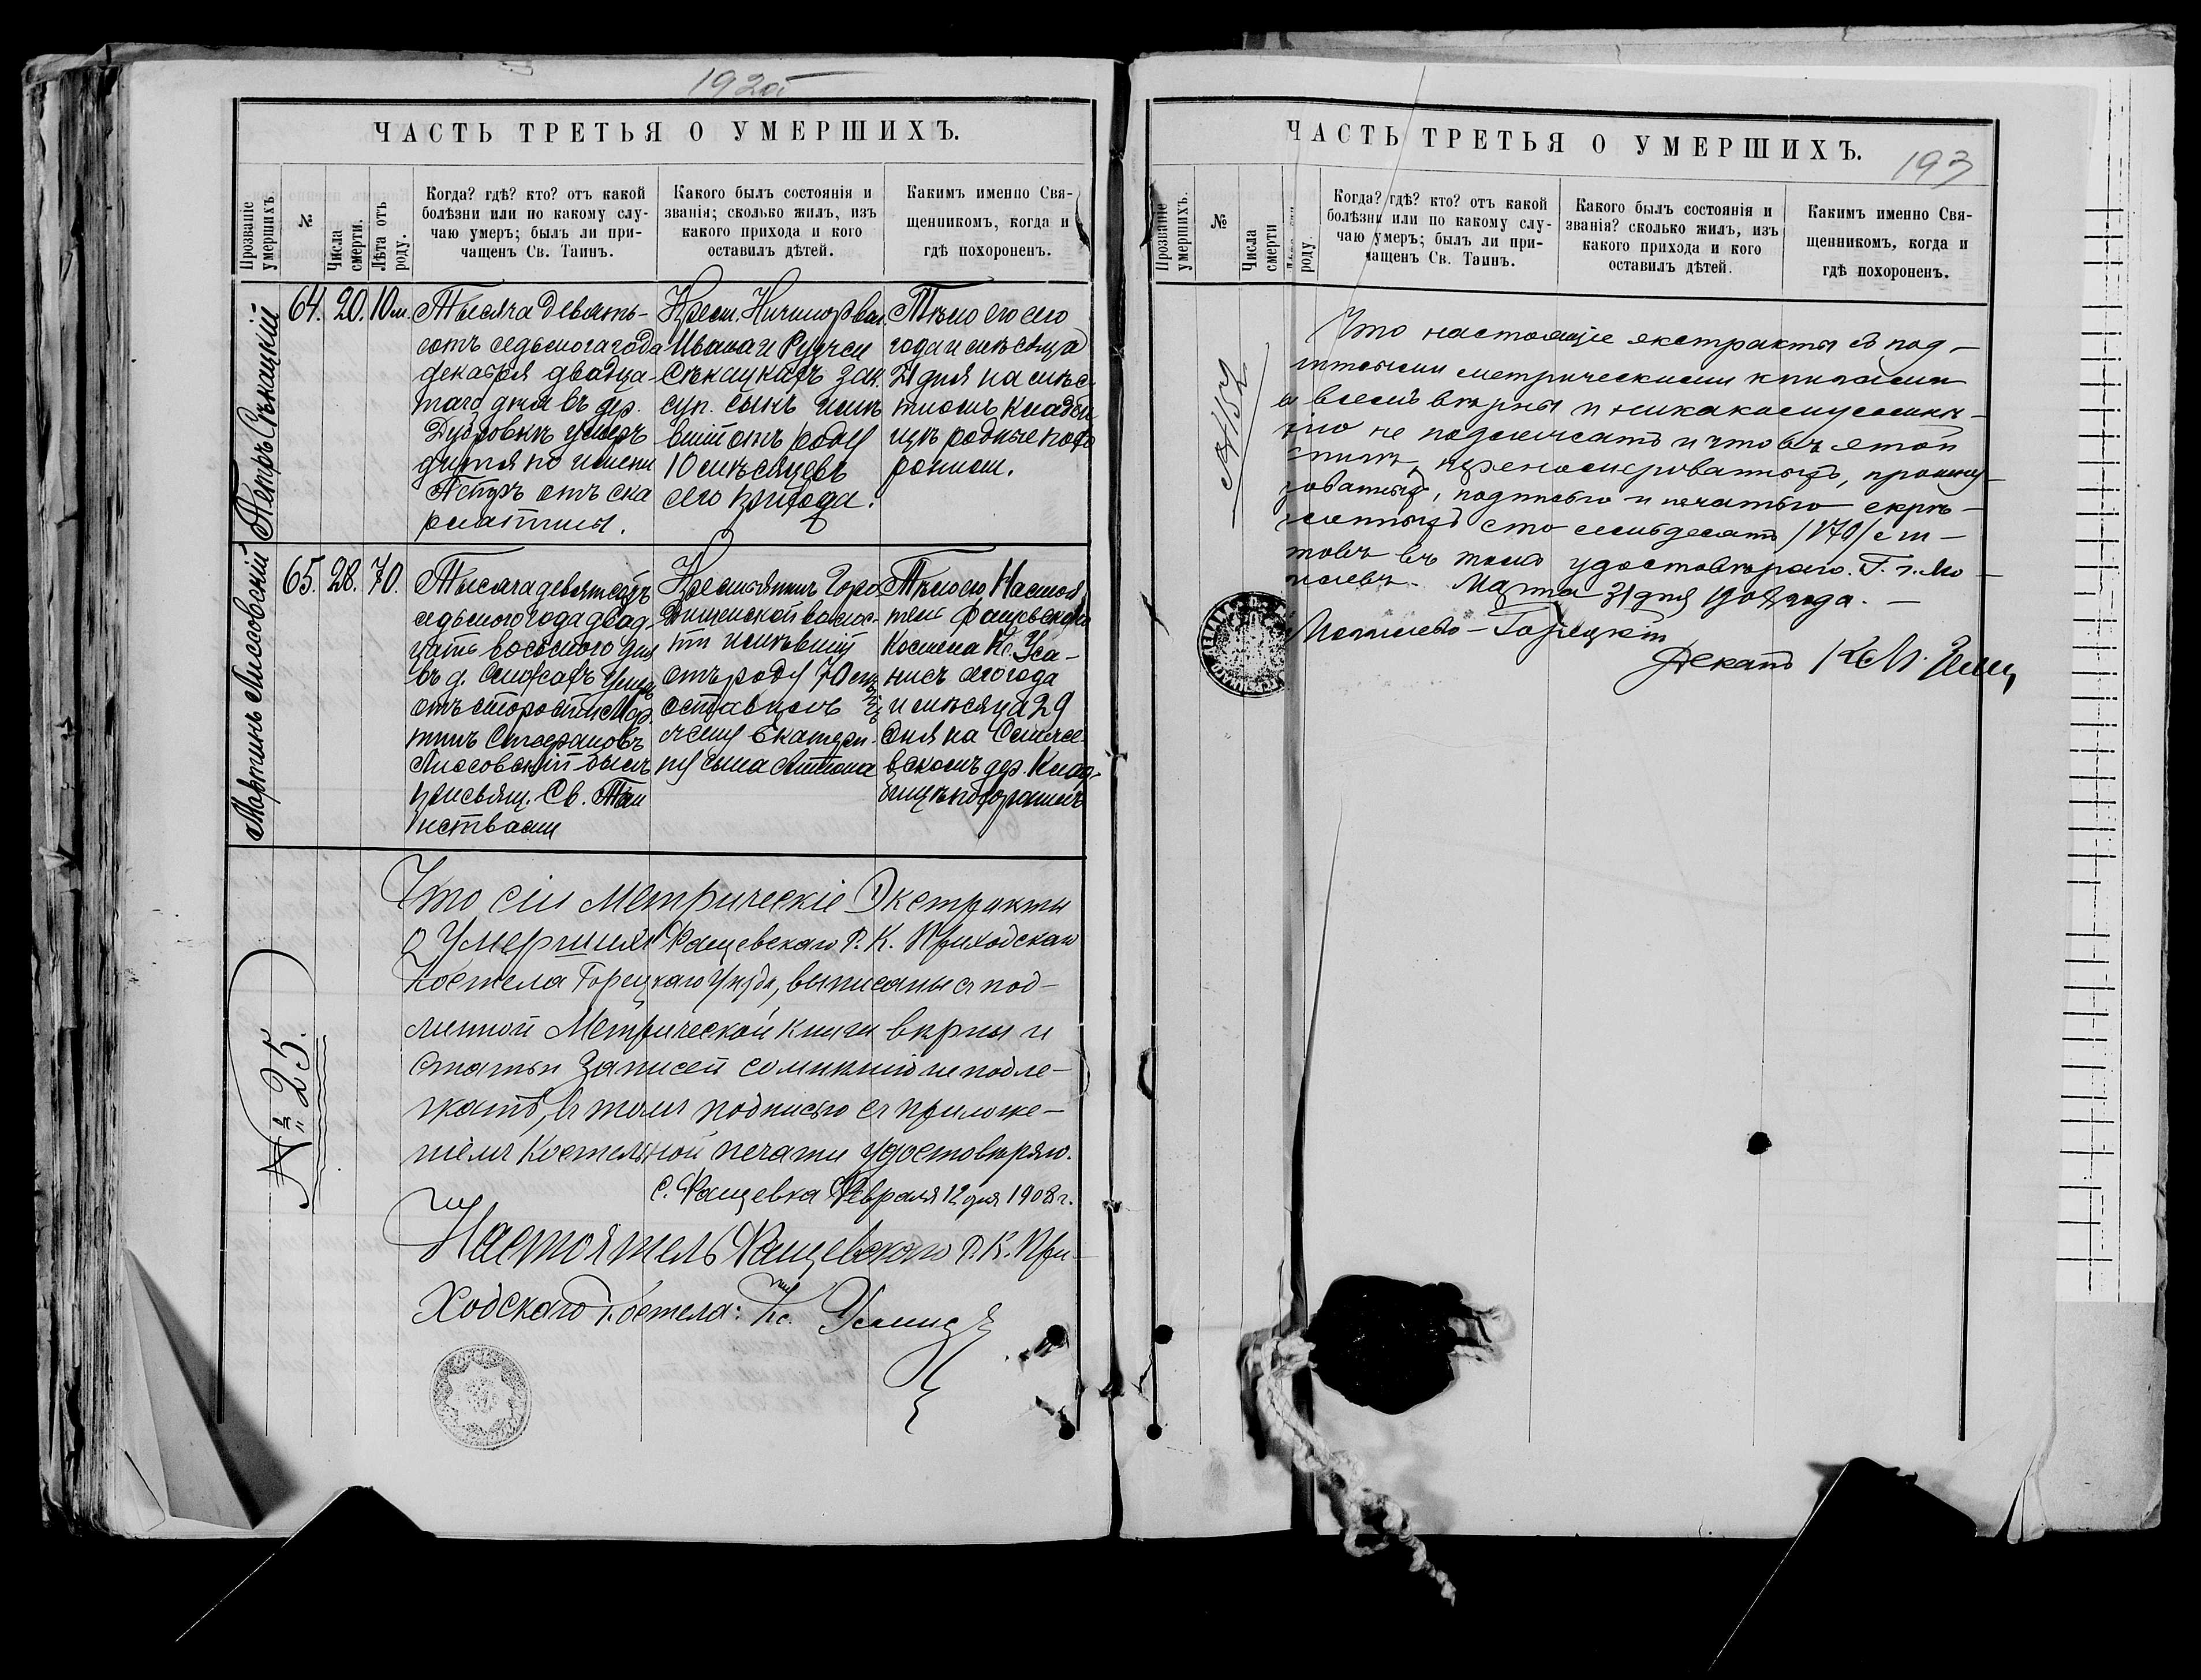 192об
ЧАСТЬ ТРЕТЬЯ О УМЕРШИХЪ.
Прозваніе умершихъ.
№
Числа смерти.
Лѣта отъ роду.
Когда? гдѣ? кто? отъ какой
болѣзни или по какому слу-
чаю умеръ; былъ ли при-
чащенъ Св. Таинъ.
Какого былъ состоянія и
званія; сколько жилъ, изъ
какого прихода и кого
оставилъ дѣтей.
Какимъ именно Свя-
щенникомъ, когда и
гдѣ похороненъ.
Петръ
64. 20. 10 м.
Тысяча девять-
сотъ седьмого года
декабря двадца-
таго дня въ дер.
Дубровкѣ умеръ
дитя по имени
Петръ отъ ска
рлатины.
Крест.
Ивана и
зак.
суп. сынъ имѣ
вшій отъ роду
10 мѣсяцевъ
сего прихода.
Тѣло его сего
года и мѣсяца
21 дня на мѣс-
тномъ кладби
щѣ родные похо
ронили.
Мартинъ Лисовскій
65. 28. 70.
Тысяча девятсотъ
седьмого года двад
цать восьмого дня
въ д. умеръ
отъ старости Мар
тинъ Стефановъ
Лисовскій былъ
присвящ. Св. Таи
нствами
Крестьянинъ
волос-
ти имѣвшій
отъ роду 70 лѣтъ
оставилъ
жену Екатери-
ну сына Антона
Тѣло его Настоя
тель Фащевскаго
Костела Кс. Уса-
нисъ сего года
и мѣсяца 29
дня на
вскомъ дер. Клад-
бищѣ похоронилъ
№ 25.
Что сіи Метрическіе Экстракты
о Умершихъ Фащевскаго Р. К. Приходскаго
Костела Горецкаго Уѣзда, выписаны съ под-
линной Метрической книги вѣрны и
статьи записей сомнѣнію не подле-
жатъ, въ томъ подписью съ приложе-
ніемъ Костельной печати удостовѣряю.
С. Фащевка Февраля 12 дня 1908 г.
Настоятель Фащевскаго Р. К. При-
ходскаго Костела: Кс.
193
ЧАСТЬ ТРЕТЬЯ О УМЕРШИХЪ.
Прозваніе умершихъ.
№
Числа смерти
роду.
Когда? гдѣ? кто? отъ какой
болѣзни или по какому слу-
чаю умеръ; былъ ли при-
чащенъ Св. Таинъ.
Какого былъ состоянія и
званія? сколько жилъ, изъ
какого прихода и кого
оставилъ дѣтей.
Какимъ именно Свя-
щенникомъ, когда и
гдѣ похороненъ.
№ 152
Что настоящіе экстракты съ под-
линными метрическими книгами
во всемъ вѣрны и никакому сомнѣ-
нію не подлежатъ и что въ этой
книгѣ, перенумерованныхъ, прошну-
рованныхъ, подписью и печатью скрѣ-
пленныхъ сто семьдесятъ /170/ лис-
товъ въ томъ удостовѣряю. Г. г. Мо-
гилевъ. Марта 31 дня 1908 года. —
Могилево-Горецкій
Деканъ